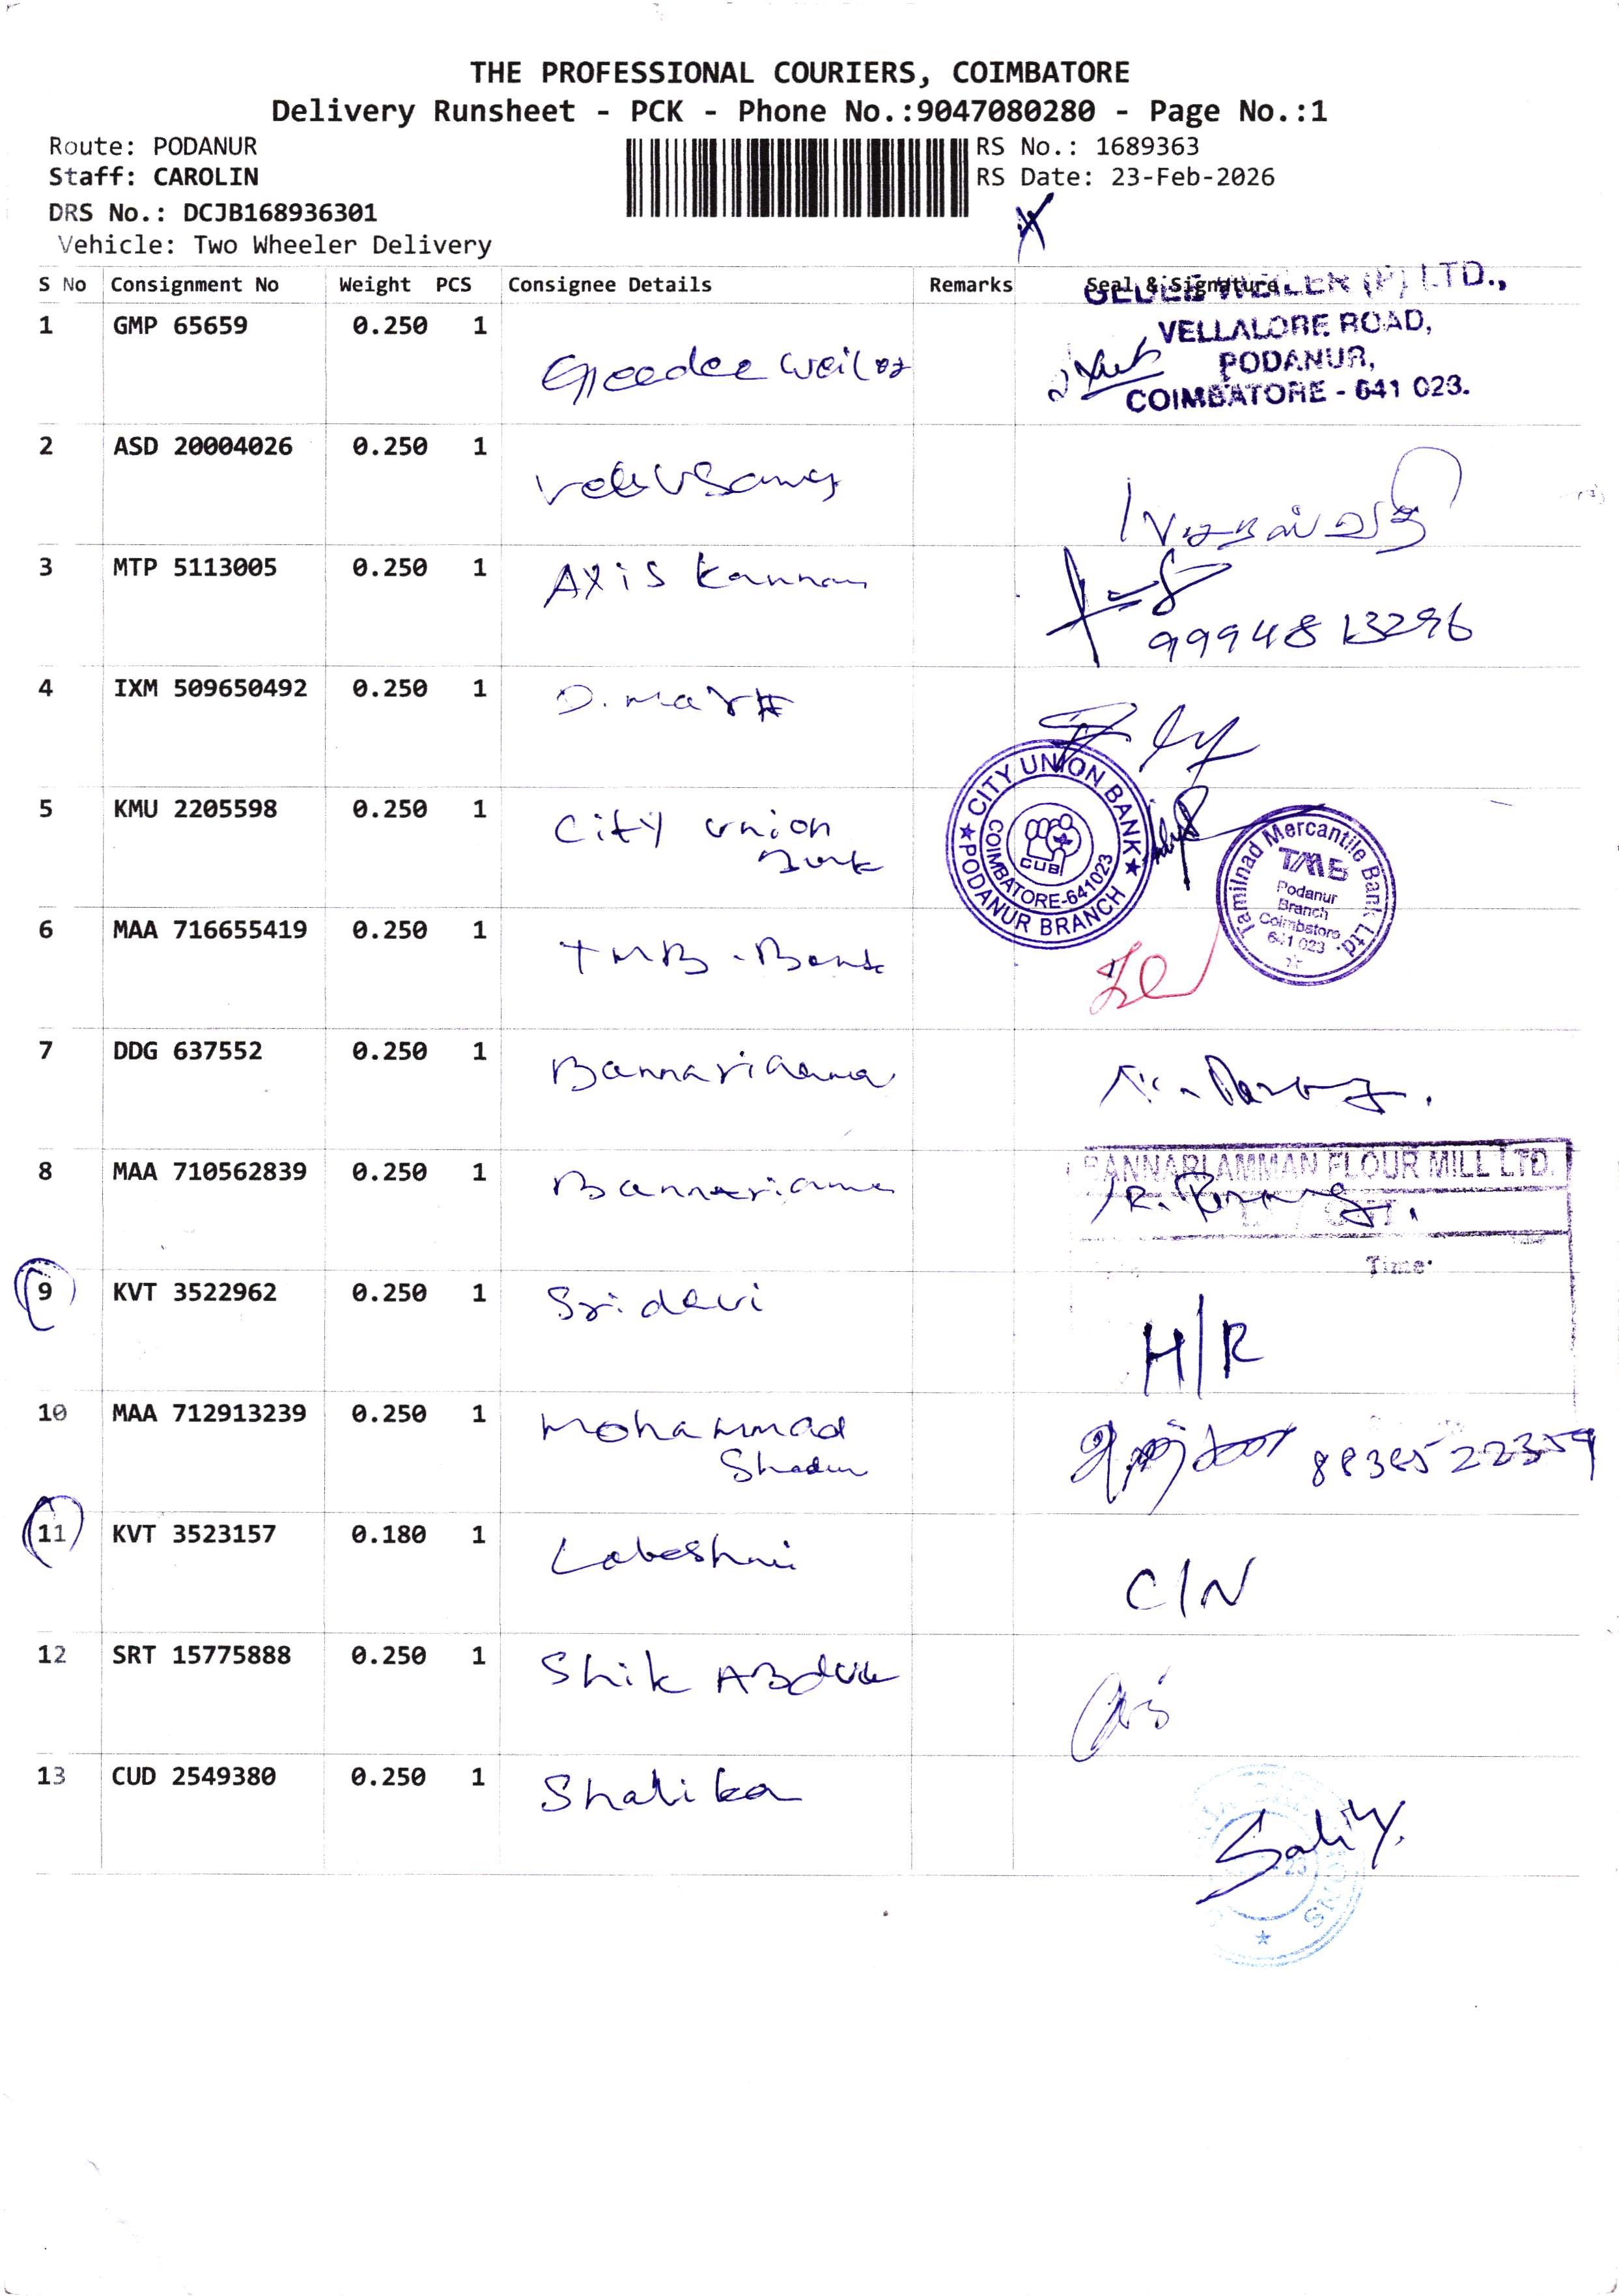 THE PROFESSIONAL COURIERS, COIMBATORE
Delivery Runsheet - PCK - Phone No.:9047080280 - Page No.:1
Route: PODANUR
Staff: CAROLIN
DRS No.: DCJB168936301
Vehicle: Two Wheeler Delivery
RS No.: 1689363
RS Date: 23-Feb-2026
S No Consignment No Weight PCS Consignee Details Remarks Seal & Signature
WEILER (P) LTD.,
VELLALORE ROAD,
PODANUR,
COIMBATORE - 641 023.
1 GMP 65659 0.250 1 Geedee weiler
2 ASD 20004026 0.250 1
3 MTP 5113005 0.250 1 Axis Kannan
9994813296
4 IXM 509650492 0.250 1 D. mart
5 KMU 2205598 0.250 1 City union
CITY UNION BANK
COIMBATORE-641023
CUB
PODANUR BRANCH
Tamilnad Mercantile Bank Ltd.
TMB
Podanur
Branch
Coimbatore
641 023
6 MAA 716655419 0.250 1 TMB - Bank
7 DDG 637552 0.250 1 Bannariamma
8 MAA 710562839 0.250 1 Bannariamma
BANNARIAMMAN FLOUR MILL LTD.
Time
9 KVT 3522962 0.250 1 Sridevi H/R
10 MAA 712913239 0.250 1 Mohammad
11 KVT 3523157 0.180 1 C/N
12 SRT 15775888 0.250 1 Shik Abdul
13 CUD 2549380 0.250 1 Shalika